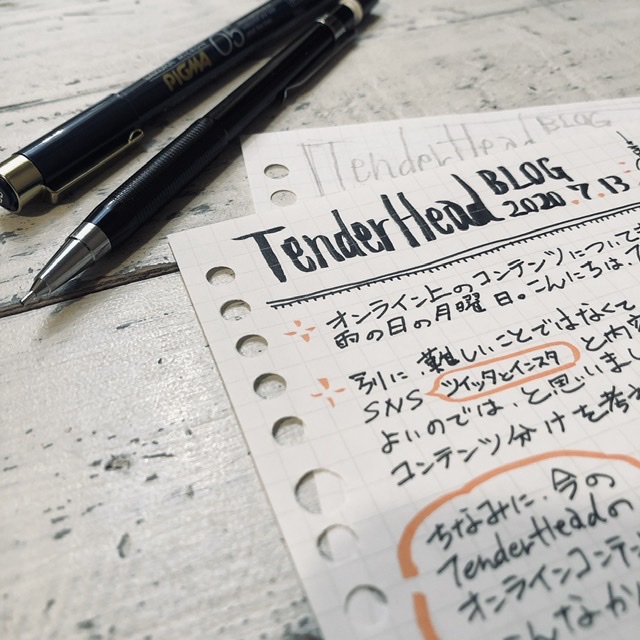 PIGMA 05
TenderHead BLOG
TenderHead BLOG
2020 7.13
オンライン上のコンテンツについて
雨の日の月曜日。こんにちは。
別に難しいことではなくて
SNS ツイッタとインスタ と
よいのでは、と思いまし
コンテンツ分けを考
ちなみに、今の
TenderHeadの
オンラインコンテ
んなかん